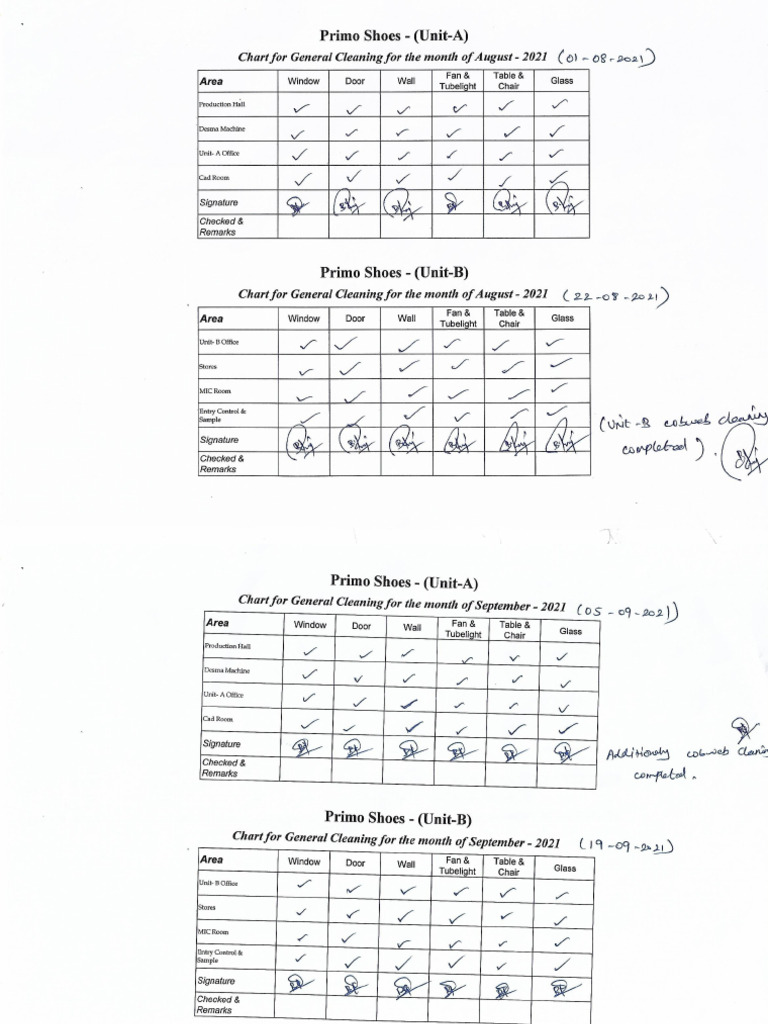 Primo Shoes - (Unit-A)
Chart for General Cleaning for the month of August - 2021 (01-08-2021)
Area Window Door Wall Fan & Tubelight Table & Chair Glass
Production Hall ✓ ✓ ✓ ✓ ✓ ✓
Desma Machine ✓ ✓ ✓ ✓ ✓ ✓
Unit- A Office ✓ ✓ ✓ ✓ ✓ ✓
Cad Room ✓ ✓ ✓ ✓ ✓ ✓
Signature
Checked &
Remarks
Primo Shoes - (Unit-B)
Chart for General Cleaning for the month of August - 2021 (22-08-2021)
Area Window Door Wall Fan & Tubelight Table & Chair Glass
Unit- B Office ✓ ✓ ✓ ✓ ✓ ✓
Stores ✓ ✓ ✓ ✓ ✓ ✓
MIC Room ✓ ✓ ✓ ✓ ✓ ✓
Entry Control &
Sample ✓ ✓ ✓ ✓ ✓ ✓
(Unit-B cobweb cleaning
completed).
Signature
Checked &
Remarks
Primo Shoes - (Unit-A)
Chart for General Cleaning for the month of September - 2021 (05-09-2021)
Area Window Door Wall Fan & Tubelight Table & Chair Glass
Production Hall ✓ ✓ ✓ ✓ ✓ ✓
Desma Machine ✓ ✓ ✓ ✓ ✓ ✓
Unit- A Office ✓ ✓ ✓ ✓ ✓ ✓
Cad Room ✓ ✓ ✓ ✓ ✓ ✓
Signature
Additionaly cobweb cleaning
completed.
Checked &
Remarks
Primo Shoes - (Unit-B)
Chart for General Cleaning for the month of September - 2021 (19-09-2021)
Area Window Door Wall Fan & Tubelight Table & Chair Glass
Unit- B Office ✓ ✓ ✓ ✓ ✓ ✓
Stores ✓ ✓ ✓ ✓ ✓ ✓
MIC Room ✓ ✓ ✓ ✓ ✓ ✓
Entry Control &
Sample ✓ ✓ ✓ ✓ ✓ ✓
Signature
Checked &
Remarks